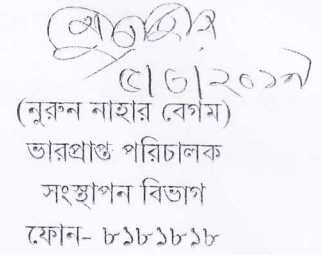 ৫।৩।২০১৭
(নুরুন নাহার বেগম)
ভারপ্রাপ্ত পরিচালক
সংস্থাপন বিভাগ
ফোন- ৮১৮১৮১৮